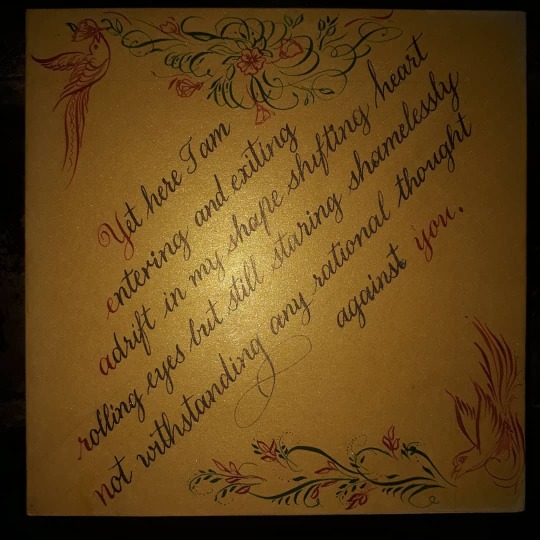 Yet here I am
entering and exiting
adrift in my shape shifting heart
rolling eyes but still staring shamelessly
not withstanding any rational thought
against you.